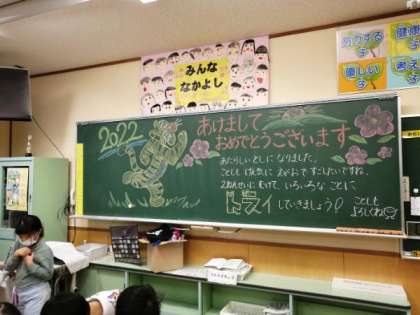 みんな
なかよし
努力する
子
優しい
子
健康
子
考え
2022
あけまして
おめでとうございます
あたらしい としに なりました。
ことしも げん気に えがおで すごしたいですね。
2ねんせいに むけて、いろいろな ことに
トライ していきましょう♪
ことしも
よろしくね